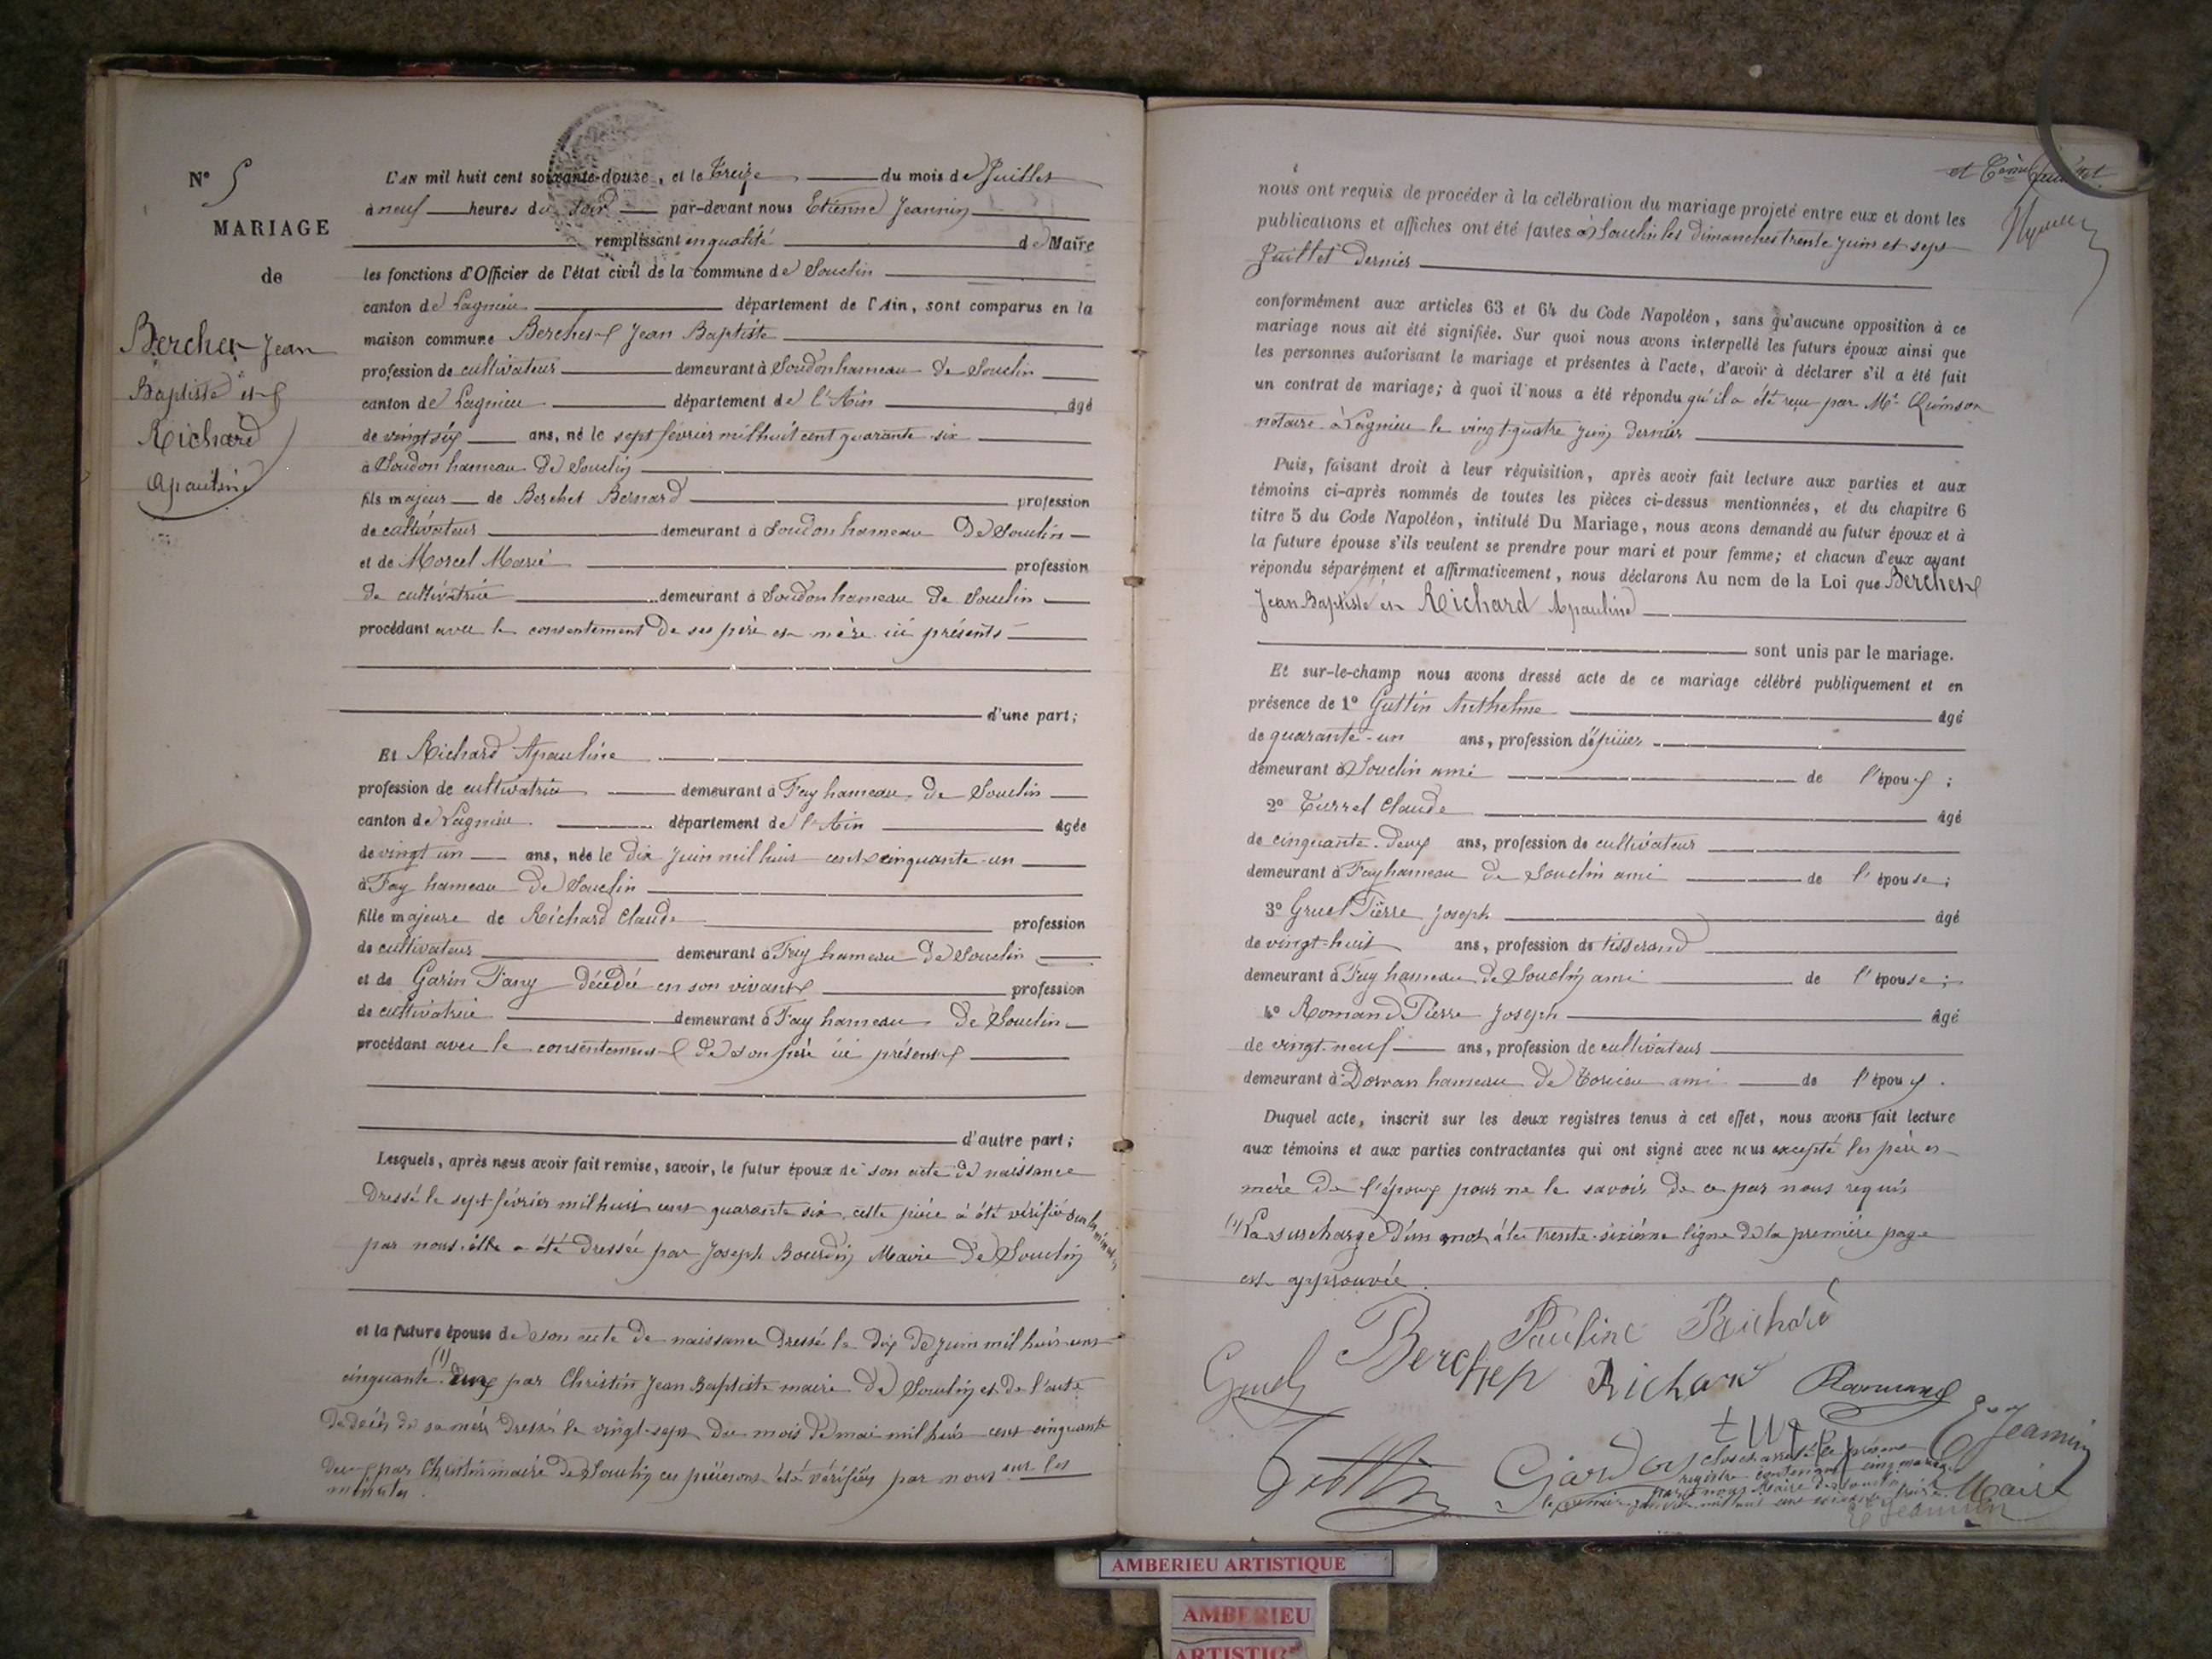 N° 5
MARIAGE
de
Bercher Jean
Baptiste et
Richard
Apauline
L'AN mil huit cent soixante-douze, et le Treize du mois de Juillet
à neuf heures du soir par-devant nous Etienne Jeannin
remplissant en qualité de Maire
les fonctions d'Officier de l'état civil de la commune de Souclin
canton de Lagnieu département de l'Ain, sont comparus en la
maison commune Berchet Jean Baptiste
profession de cultivateur demeurant à Soudon hameau de Souclin
canton de Lagnieu département de l'Ain âgé
de vingt six ans, né le sept février mil huit cent quarante six
à Soudon hameau de Souclin
fils majeur de Berchet Bernard profession
de cultivateur demeurant à Soudon hameau de Souclin
et de Morcel Marie profession
de cultivatrice demeurant à Soudon hameau de Souclin
procédant avec le consentement de ses père et mère ici présents
d'une part;
Et Richard Apauline
profession de cultivatrice demeurant à Fay hameau de Souclin
canton de Lagnieu département de l'Ain âgée
de vingt un ans, née le dix juin mil huit cent cinquante un
à Fay hameau de Souclin
fille majeure de Richard Claude profession
de cultivateur demeurant à Fay hameau de Souclin
et de Garin Fany décédée en son vivant profession
de cultivatrice demeurant à Fay hameau de Souclin
procédant avec le consentement de son père ici présent
d'autre part;
Lesquels, après nous avoir fait remise, savoir, le futur époux de son acte de naissance
dressé le sept février mil huit cent quarante six, cette pièce a été vérifiée sur les minutes
par nous. elle a été dressée par Joseph Bourdin Maire de Souclin
et la future épouse de son acte de naissance dressé le dix de juin mil huit cent
cinquante (1) par Christin Jean Baptiste maire de Souclin et de l'acte
de décès de sa mère dressé le vingt-sept du mois de mai mil huit cent cinquante
deux par Christin maire de Souclin ces pièces ont été vérifiées par nous sur les
minutes.
nous ont requis de procéder à la célébration du mariage projeté entre eux et dont les
publications et affiches ont été faites à Souclin les dimanches trente juin et sept
Juillet dernier
conformément aux articles 63 et 64 du Code Napoléon, sans qu'aucune opposition à ce
mariage nous ait été signifiée. Sur quoi nous avons interpellé les futurs époux ainsi que
les personnes autorisant le mariage et présentes à l'acte, d'avoir à déclarer s'il a été fait
un contrat de mariage; à quoi il nous a été répondu qu'il a été reçu par Me Quinson
notaire à Lagnieu le vingt-quatre juin dernier
Puis, faisant droit à leur réquisition, après avoir fait lecture aux parties et aux
témoins ci-après nommés de toutes les pièces ci-dessus mentionnées, et du chapitre 6
titre 5 du Code Napoléon, intitulé Du Mariage, nous avons demandé au futur époux et à
la future épouse s'ils veulent se prendre pour mari et pour femme; et chacun d'eux ayant
répondu séparément et affirmativement, nous déclarons Au nom de la Loi que Berchet
Jean Baptiste et Richard Apauline
sont unis par le mariage.
Et sur-le-champ nous avons dressé acte de ce mariage célébré publiquement et en
présence de 1° Guttin Anthelme âgé
de quarante-un ans, profession d'épicier
demeurant à Souclin ami de l'époux;
2° Turrel Claude âgé
de cinquante-deux ans, profession de cultivateur
demeurant à Fay hameau de Souclin ami de l'épouse;
3° Gruel Pierre Joseph âgé
de vingt-huit ans, profession de tisserand
demeurant à Fay hameau de Souclin ami de l'épouse;
4° Romand Pierre Joseph âgé
de vingt-neuf ans, profession de cultivateur
demeurant à Dorvan hameau de Torcieu ami de l'époux.
Duquel acte, inscrit sur les deux registres tenus à cet effet, nous avons fait lecture
aux témoins et aux parties contractantes qui ont signé avec nous excepté les père et
mère de l'époux pour ne le savoir de ce par nous requis
(1) La surcharge d'un mot à la trente-sixième ligne de la première page
est approuvée.
Pauline Richard
Gruel Bercher Richard Romand
E. Jeannin
Maire
AMBERIEU ARTISTIQUE
AMBERIEU